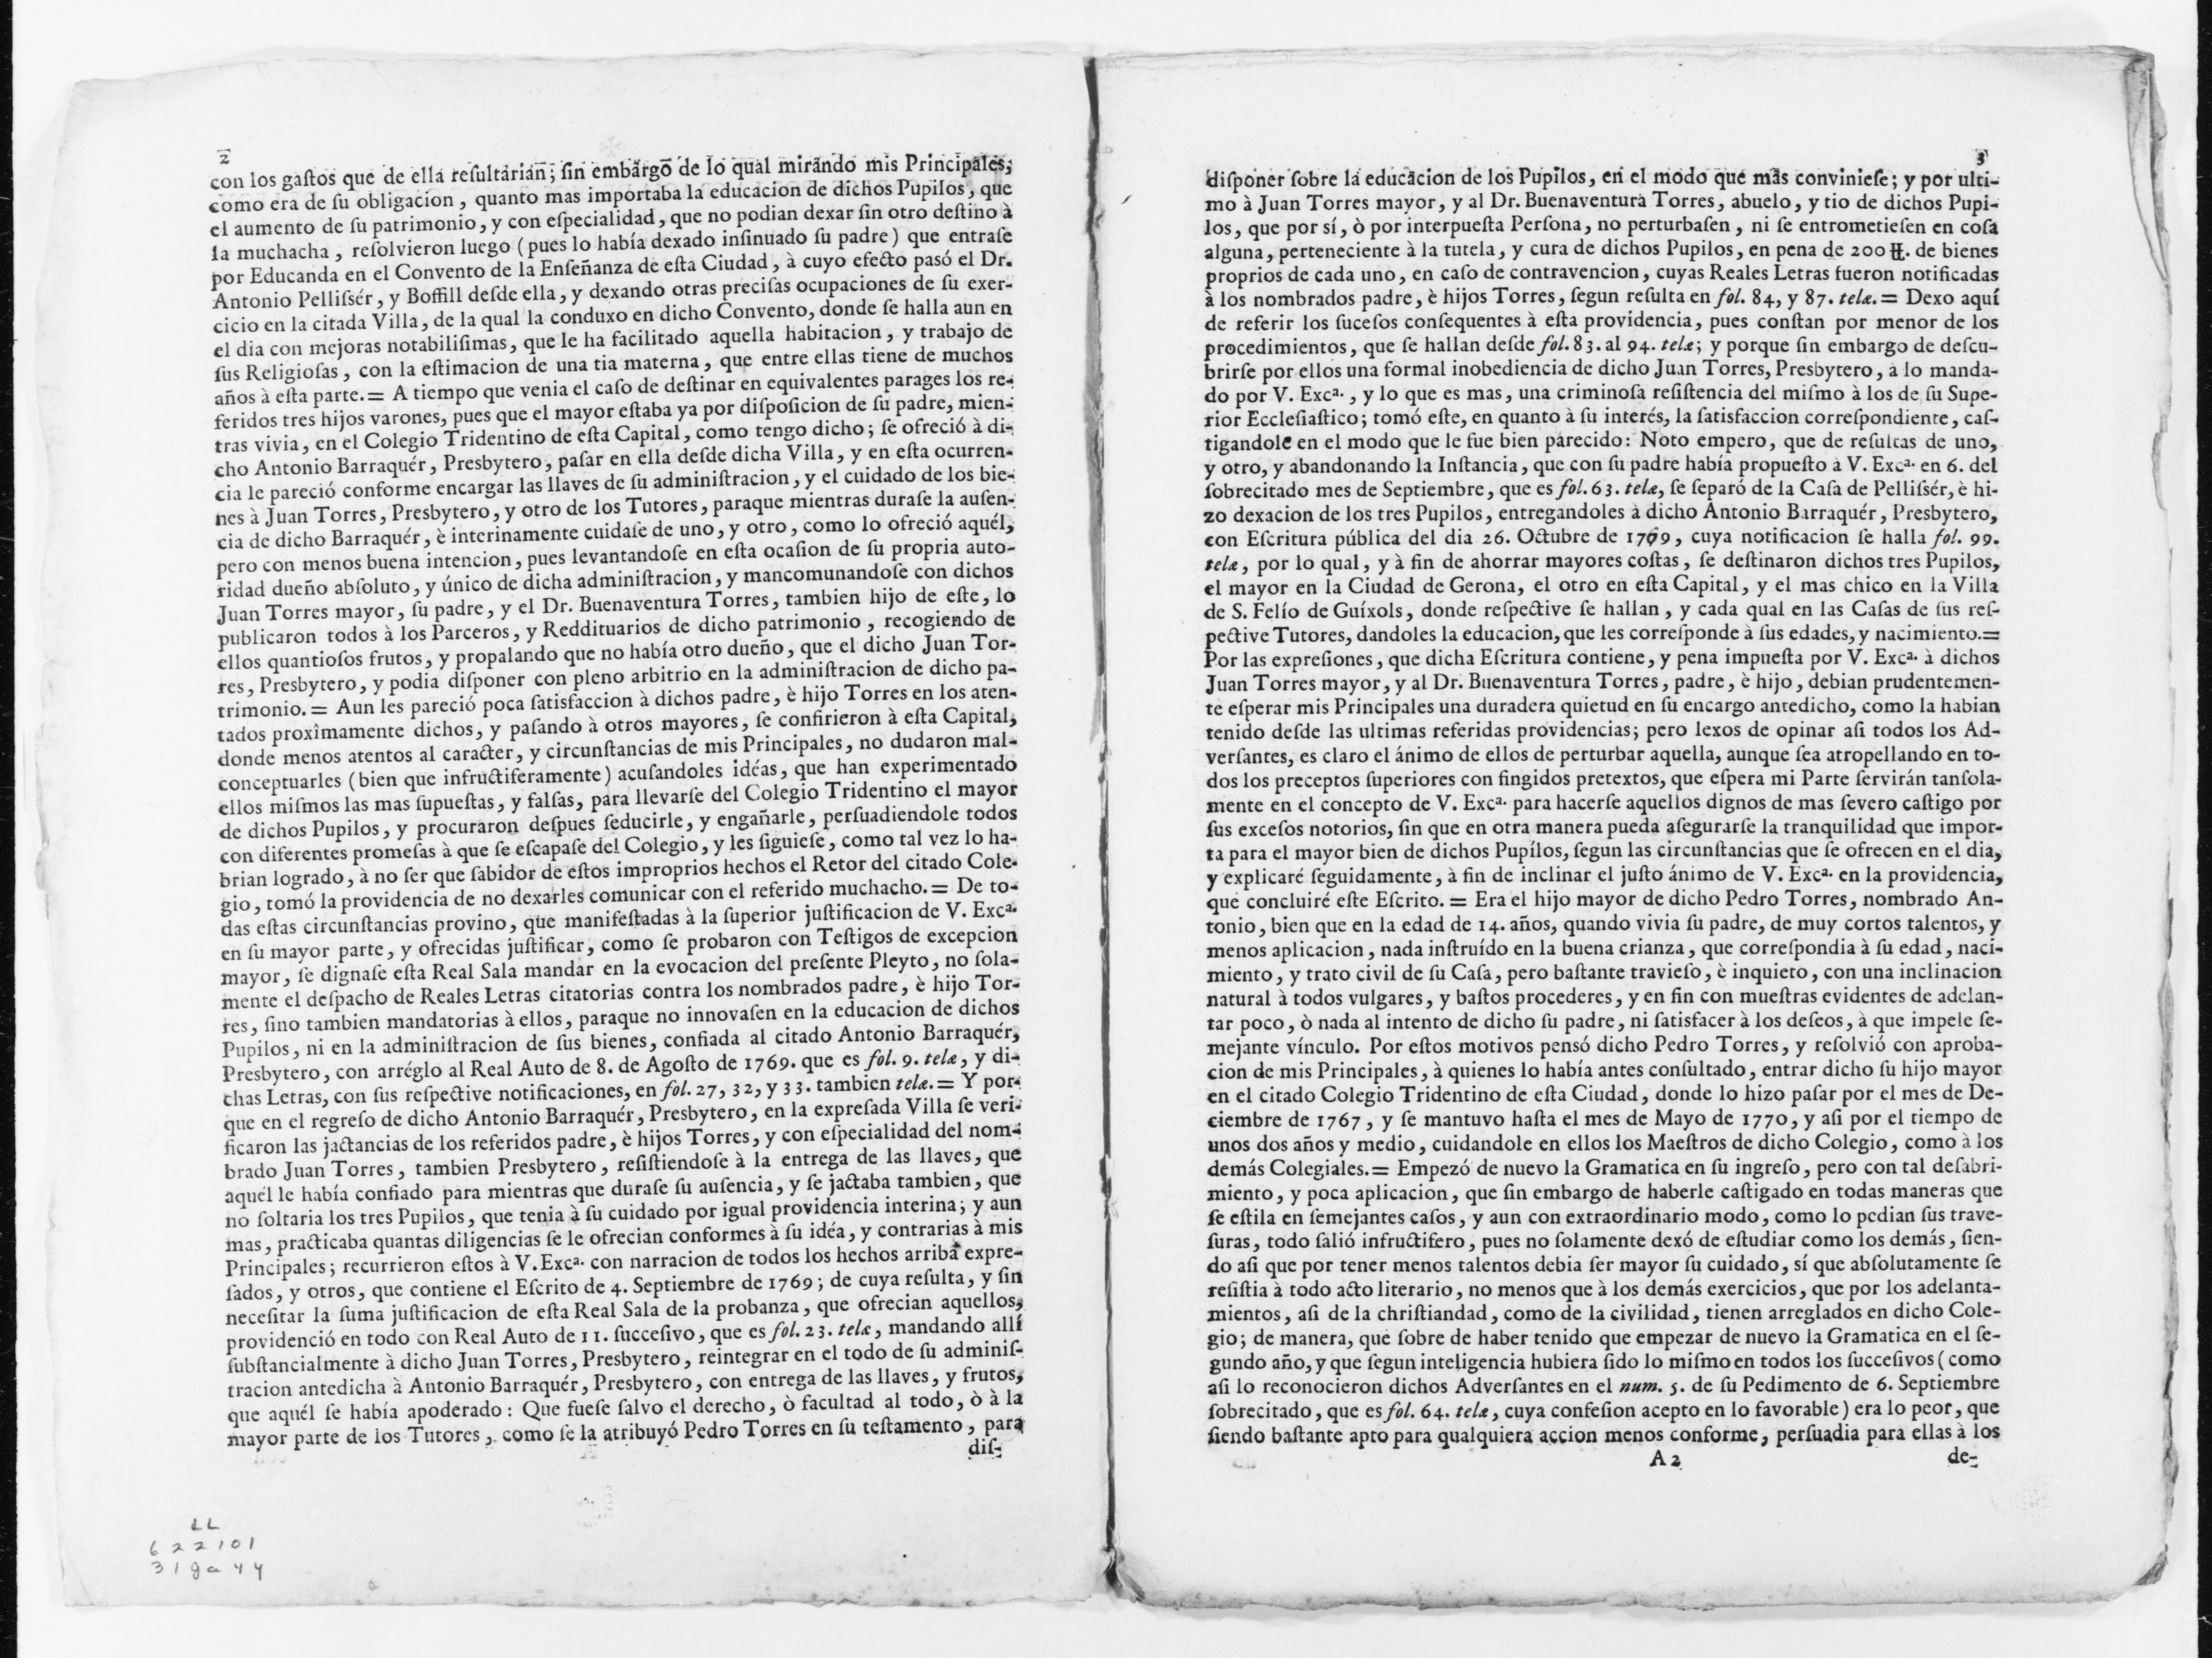 2
con los gaſtos que de ella reſultarián; ſin embargo de lo qual mirando mis Principales,
como era de ſu obligacion, quanto mas importaba la educacion de dichos Pupilos, que
el aumento de ſu patrimonio, y con eſpecialidad, que no podian dexar ſin otro deſtino à
la muchacha, reſolvieron luego (pues lo había dexado inſinuado ſu padre) que entraſe
por Educanda en el Convento de la Enſeñanza de eſta Ciudad, à cuyo efecto pasó el Dr.
Antonio Pelliſsér, y Boffill deſde ella, y dexando otras preciſas ocupaciones de ſu exer-
cicio en la citada Villa, de la qual la conduxo en dicho Convento, donde ſe halla aun en
el dia con mejoras notabiliſimas, que le ha facilitado aquella habitacion, y trabajo de
ſus Religioſas, con la eſtimacion de una tia materna, que entre ellas tiene de muchos
años à eſta parte.= A tiempo que venia el caſo de deſtinar en equivalentes parages los re-
feridos tres hijos varones, pues que el mayor eſtaba ya por diſpoſicion de ſu padre, mien-
tras vivia, en el Colegio Tridentino de eſta Capital, como tengo dicho; ſe ofreció à di-
cho Antonio Barraquér, Presbytero, paſar en ella deſde dicha Villa, y en eſta ocurren-
cia le pareció conforme encargar las llaves de ſu adminiſtracion, y el cuidado de los bie-
nes à Juan Torres, Presbytero, y otro de los Tutores, paraque mientras duraſe la auſen-
cia de dicho Barraquér, è interinamente cuidaſe de uno, y otro, como lo ofreció aquél,
pero con menos buena intencion, pues levantandoſe en eſta ocaſion de ſu propria auto-
ridad dueño abſoluto, y único de dicha adminiſtracion, y mancomunandoſe con dichos
Juan Torres mayor, ſu padre, y el Dr. Buenaventura Torres, tambien hijo de eſte, lo
publicaron todos à los Parceros, y Reddituarios de dicho patrimonio, recogiendo de
ellos quantioſos frutos, y propalando que no había otro dueño, que el dicho Juan Tor-
res, Presbytero, y podia diſponer con pleno arbitrio en la adminiſtracion de dicho pa-
trimonio.= Aun les pareció poca ſatisfaccion à dichos padre, è hijo Torres en los aten-
tados proxîmamente dichos, y paſando à otros mayores, ſe confirieron à eſta Capital,
donde menos atentos al caracter, y circunſtancias de mis Principales, no dudaron mal-
conceptuarles (bien que infructiferamente) acuſandoles idéas, que han experimentado
ellos miſmos las mas ſupueſtas, y falſas, para llevarſe del Colegio Tridentino el mayor
de dichos Pupilos, y procuraron deſpues ſeducirle, y engañarle, perſuadiendole todos
con diferentes promeſas à que ſe eſcapaſe del Colegio, y les ſiguieſe, como tal vez lo ha-
brian logrado, à no ſer que ſabidor de eſtos improprios hechos el Retor del citado Cole-
gio, tomó la providencia de no dexarles comunicar con el referido muchacho.= De to-
das eſtas circunſtancias provino, que manifeſtadas à la ſuperior juſtificacion de V. Exca.
en ſu mayor parte, y ofrecidas juſtificar, como ſe probaron con Teſtigos de excepcion
mayor, ſe dignaſe eſta Real Sala mandar en la evocacion del preſente Pleyto, no ſola-
mente el deſpacho de Reales Letras citatorias contra los nombrados padre, è hijo Tor-
res, ſino tambien mandatorias à ellos, paraque no innovaſen en la educacion de dichos
Pupilos, ni en la adminiſtracion de ſus bienes, confiada al citado Antonio Barraquér,
Presbytero, con arréglo al Real Auto de 8. de Agoſto de 1769. que es fol. 9. telæ, y di-
chas Letras, con ſus reſpective notificaciones, en fol. 27, 32, y 33. tambien telæ.= Y por-
que en el regreſo de dicho Antonio Barraquér, Presbytero, en la expreſada Villa ſe veri-
ficaron las jactancias de los referidos padre, è hijos Torres, y con eſpecialidad del nom-
brado Juan Torres, tambien Presbytero, reſiſtiendoſe à la entrega de las llaves, que
aquel le había confiado para mientras que duraſe ſu auſencia, y ſe jactaba tambien, que
no ſoltaria los tres Pupilos, que tenia à ſu cuidado por igual providencia interina; y aun
mas, practicaba quantas diligencias ſe le ofrecian conformes à ſu idéa, y contrarias à mis
Principales; recurrieron eſtos à V. Exca. con narracion de todos los hechos arriba expre-
ſados, y otros, que contiene el Eſcrito de 4. Septiembre de 1769; de cuya reſulta, y ſin
neceſitar la ſuma juſtificacion de eſta Real Sala de la probanza, que ofrecian aquellos,
providenció en todo con Real Auto de 11. ſucceſivo, que es fol. 23. telæ, mandando allí
ſubſtancialmente à dicho Juan Torres, Presbytero, reintegrar en el todo de ſu adminiſ-
tracion antedicha à Antonio Barraquér, Presbytero, con entrega de las llaves, y frutos,
que aquél ſe había apoderado: Que fueſe ſalvo el derecho, ò facultad al todo, ò à la
mayor parte de los Tutores, como ſe la atribuyó Pedro Torres en ſu teſtamento, para
diſ-
LL
622101
319a44
3
diſponer ſobre la educacion de los Pupilos, en el modo que mas convinieſe; y por ulti-
mo à Juan Torres mayor, y al Dr. Buenaventura Torres, abuelo, y tio de dichos Pupi-
los, que por sí, ò por interpueſta Perſona, no perturbaſen, ni ſe entrometieſen en coſa
alguna, perteneciente à la tutela, y cura de dichos Pupilos, en pena de 200 ℔. de bienes
proprios de cada uno, en caſo de contravencion, cuyas Reales Letras fueron notificadas
à los nombrados padre, è hijos Torres, ſegun reſulta en fol. 84, y 87. telæ.= Dexo aquí
de referir los ſuceſos conſequentes à eſta providencia, pues conſtan por menor de los
procedimientos, que ſe hallan deſde fol. 83. al 94. telæ; y porque ſin embargo de deſcu-
brirſe por ellos una formal inobediencia de dicho Juan Torres, Presbytero, à lo manda-
do por V. Exca., y lo que es mas, una criminoſa reſiſtencia del miſmo à los de ſu Supe-
rior Eccleſiaſtico; tomó eſte, en quanto à ſu interés, la ſatisfaccion correſpondiente, caſ-
tigandole en el modo que le fue bien parecido: Noto empero, que de reſultas de uno,
y otro, y abandonando la Inſtancia, que con ſu padre había propueſto à V. Exca. en 6. del
ſobrecitado mes de Septiembre, que es fol. 63. telæ, ſe ſeparó de la Caſa de Pelliſsér, è hi-
zo dexacion de los tres Pupilos, entregandoles à dicho Antonio Barraquér, Presbytero,
con Eſcritura pública del dia 26. Octubre de 1769, cuya notificacion ſe halla fol. 99.
telæ, por lo qual, y à fin de ahorrar mayores coſtas, ſe deſtinaron dichos tres Pupilos,
el mayor en la Ciudad de Gerona, el otro en eſta Capital, y el mas chico en la Villa
de S. Felío de Guíxols, donde reſpective ſe hallan, y cada qual en las Caſas de ſus reſ-
pective Tutores, dandoles la educacion, que les correſponde à ſus edades, y nacimiento.=
Por las expreſiones, que dicha Eſcritura contiene, y pena impueſta por V. Exca. à dichos
Juan Torres mayor, y al Dr. Buenaventura Torres, padre, è hijo, debian prudentemen-
te eſperar mis Principales una duradera quietud en ſu encargo antedicho, como la habian
tenido deſde las ultimas referidas providencias; pero lexos de opinar aſi todos los Ad-
verſantes, es claro el ánimo de ellos de perturbar aquella, aunque ſea atropellando en to-
dos los preceptos ſuperiores con fingidos pretextos, que eſpera mi Parte ſervirán tanſola-
mente en el concepto de V. Exca. para hacerſe aquellos dignos de mas ſevero caſtigo por
ſus exceſos notorios, ſin que en otra manera pueda aſegurarſe la tranquilidad que impor-
ta para el mayor bien de dichos Pupílos, ſegun las circunſtancias que ſe ofrecen en el dia,
y explicaré ſeguidamente, à fin de inclinar el juſto ánimo de V. Exca. en la providencia,
que concluiré eſte Eſcrito. = Era el hijo mayor de dicho Pedro Torres, nombrado An-
tonio, bien que en la edad de 14. años, quando vivia ſu padre, de muy cortos talentos, y
menos aplicacion, nada inſtruído en la buena crianza, que correſpondia à ſu edad, naci-
miento, y trato civil de ſu Caſa, pero baſtante travieſo, è inquieto, con una inclinacion
natural à todos vulgares, y baſtos procederes, y en fin con mueſtras evidentes de adelan-
tar poco, ò nada al intento de dicho ſu padre, ni ſatisfacer à los deſeos, à que impele ſe-
mejante vínculo. Por eſtos motivos pensó dicho Pedro Torres, y reſolvió con aproba-
cion de mis Principales, à quienes lo había antes conſultado, entrar dicho ſu hijo mayor
en el citado Colegio Tridentino de eſta Ciudad, donde lo hizo paſar por el mes de De-
ciembre de 1767, y ſe mantuvo haſta el mes de Mayo de 1770, y aſi por el tiempo de
unos dos años y medio, cuidandole en ellos los Maeſtros de dicho Colegio, como à los
demás Colegiales.= Empezó de nuevo la Gramatica en ſu ingreſo, pero con tal deſabri-
miento, y poca aplicacion, que ſin embargo de haberle caſtigado en todas maneras que
ſe eſtila en ſemejantes caſos, y aun con extraordinario modo, como lo pedian ſus trave-
ſuras, todo ſalió infructifero, pues no ſolamente dexó de eſtudiar como los demás, ſien-
do aſi que por tener menos talentos debia ſer mayor ſu cuidado, sí que abſolutamente ſe
reſiſtia à todo acto literario, no menos que à los demás exercicios, que por los adelanta-
mientos, aſi de la chriſtiandad, como de la civilidad, tienen arreglados en dicho Cole-
gio; de manera, que ſobre de haber tenido que empezar de nuevo la Gramatica en el ſe-
gundo año, y que ſegun inteligencia hubiera ſido lo miſmo en todos los ſucceſivos (como
aſi lo reconocieron dichos Adverſantes en el num. 5. de ſu Pedimento de 6. Septiembre
ſobrecitado, que es fol. 64. telæ, cuya confeſion acepto en lo favorable) era lo peor, que
ſiendo baſtante apto para qualquiera accion menos conforme, perſuadia para ellas à los
A 2
de-